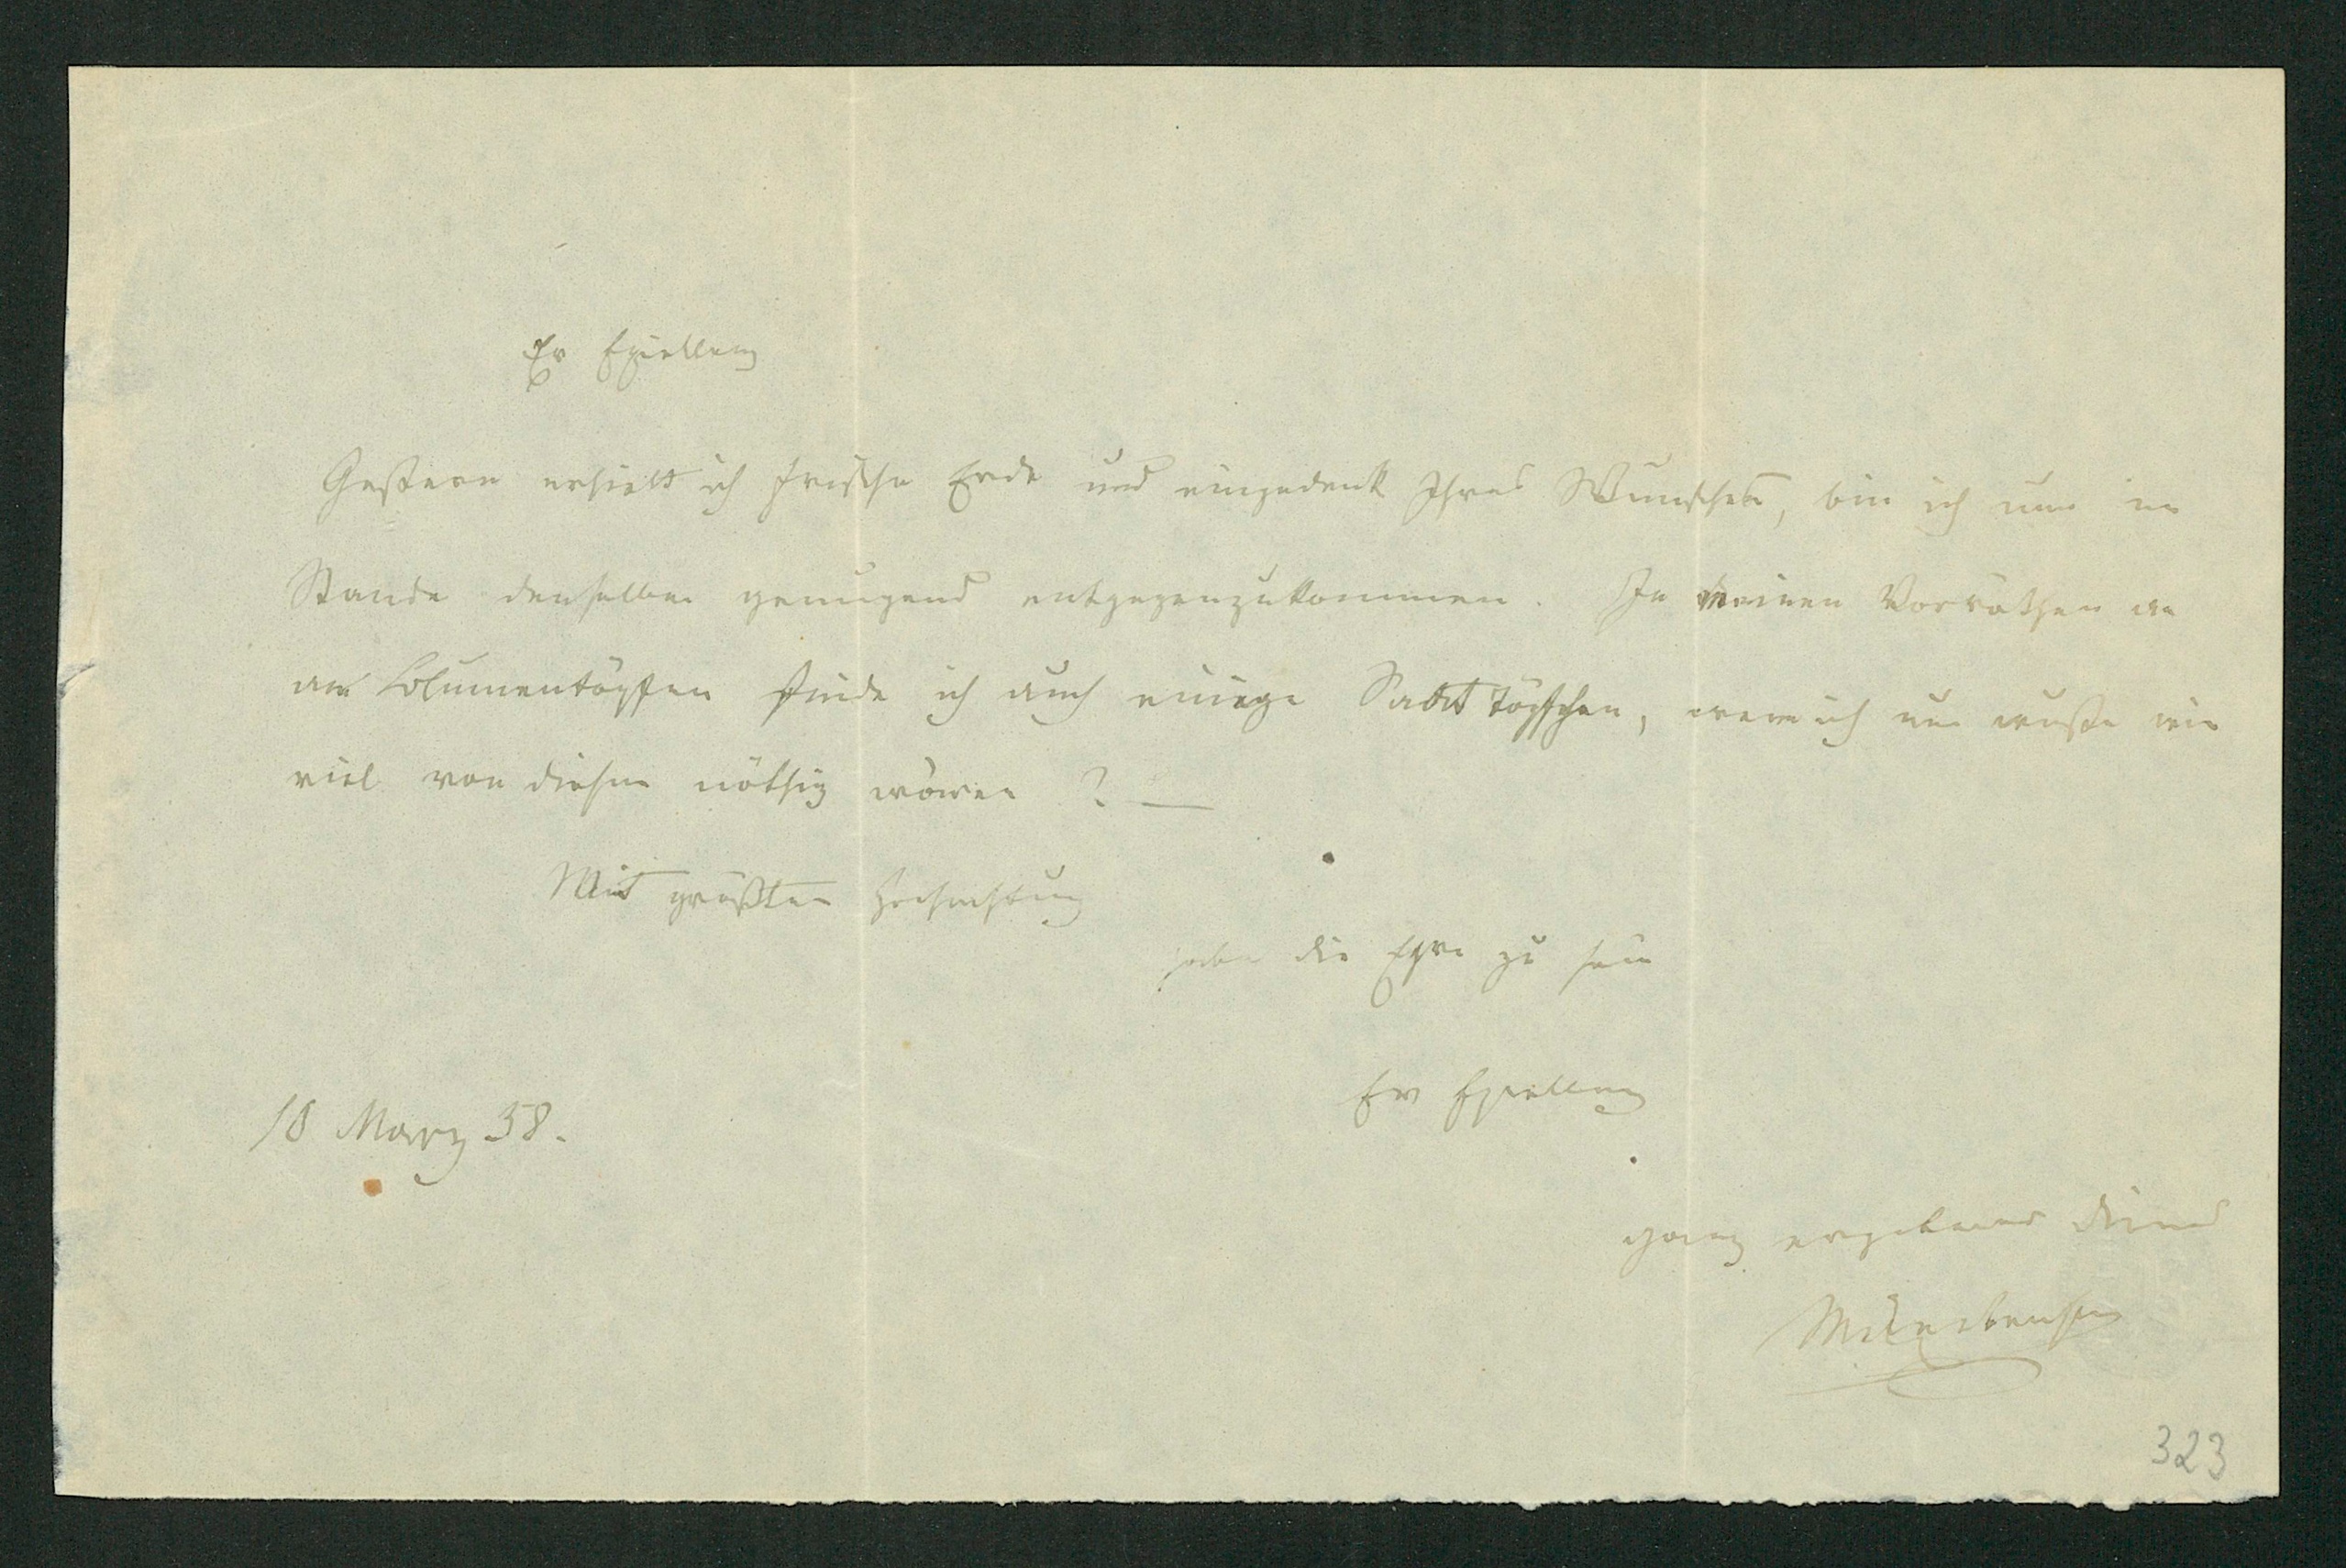 Ew Exzellenz
Gestern erhielt ich frische Erde und eingedenk Ihres Wunsches, bin ich nun im
Stande denselben genugend entgegenzukommen. In meinen Vorrathen an
an Blumentöpfen finde ich auch einige Töpfchen, wenn ich nur wuste wie
viel von diesen nöthig wären ? —
Mit größter Hochachtung
habe die Ehre zu sein
Ew Exzellenz
18 Marz 58.
ganz ergebener Diener
323